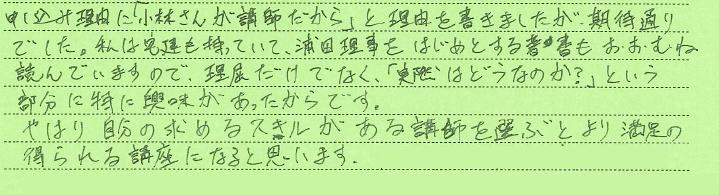 申し込み理由に「小林さんが講師だから」と理由を書きましたが、期待通り
でした。私は宅建も持っていて、浦田理事をはじめとする著書もおおむね
読んでいますので、理屈だけでなく、「実際はどうなのか？」という
部分に特に興味があったからです。
やはり自分の求めるスキルがある講師を選ぶとより満足の
得られる講座になると思います。